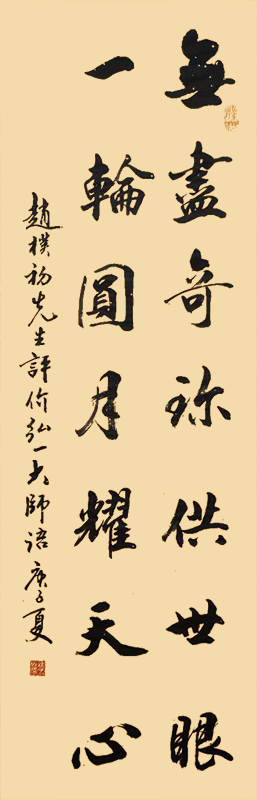 無盡奇珍供世眼
一輪圓月耀天心
趙樸初先生評价弘一大師語庚子夏